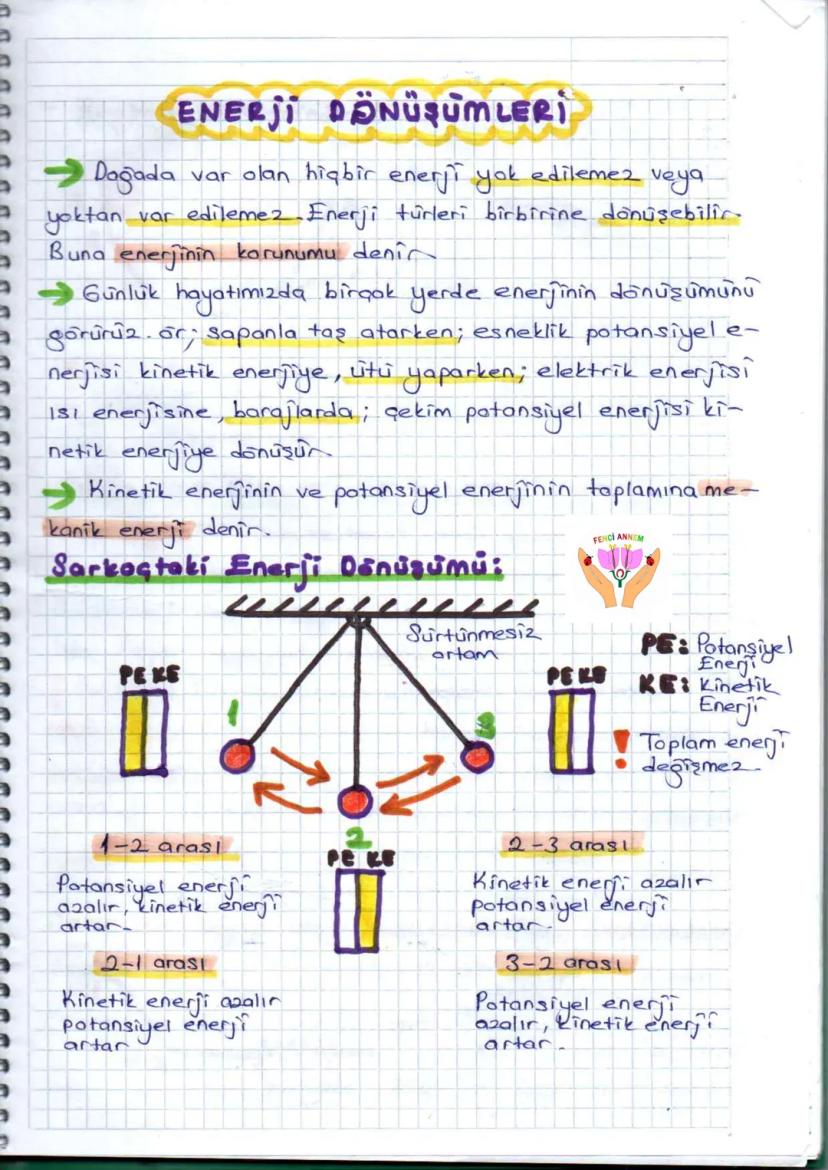 ENERJİ DÖNÜŞÜMLERİ
→ Doğada var olan hiçbir enerji yok edilemez veya
yoktan var edilemez. Enerji türleri birbirine dönüşebilir.
Buna enerjinin korunumu denir.
→ Günlük hayatımızda birçok yerde enerjinin dönüşümünü
görürüz. ör; sapanla taş atarken; esneklik potansiyel e-
nerjisi kinetik enerjiye, ütü yaparken; elektrik enerjisi
ısı enerjisine, barajlarda; çekim potansiyel enerjisi ki-
netik enerjiye dönüşür.
→ Kinetik enerjinin ve potansiyel enerjinin toplamına me-
kanik enerji denir.
FENCİ ANNEM
Sarkaçtaki Enerji Dönüşümü:
Sürtünmesiz
ortam
PE: Potansiyel
Enerji
KE: Kinetik
Enerji
PE KE
PE KE
1
3
! Toplam enerji
değişmez.
2
PE KE
1-2 arası
Potansiyel enerji
azalır, kinetik enerji
artar.
2-1 arası
Kinetik enerji azalır
potansiyel enerji
artar
2-3 arası
Kinetik enerji azalır
potansiyel enerji
artar.
3-2 arası
Potansiyel enerji
azalır, kinetik enerji
artar.